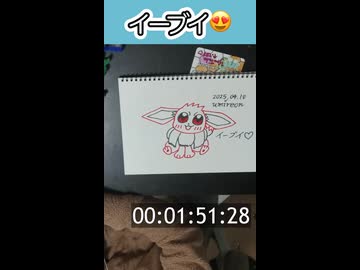 イーブイ😍
2025.04.10
umireon
イーブイ♡
00:01:51:28